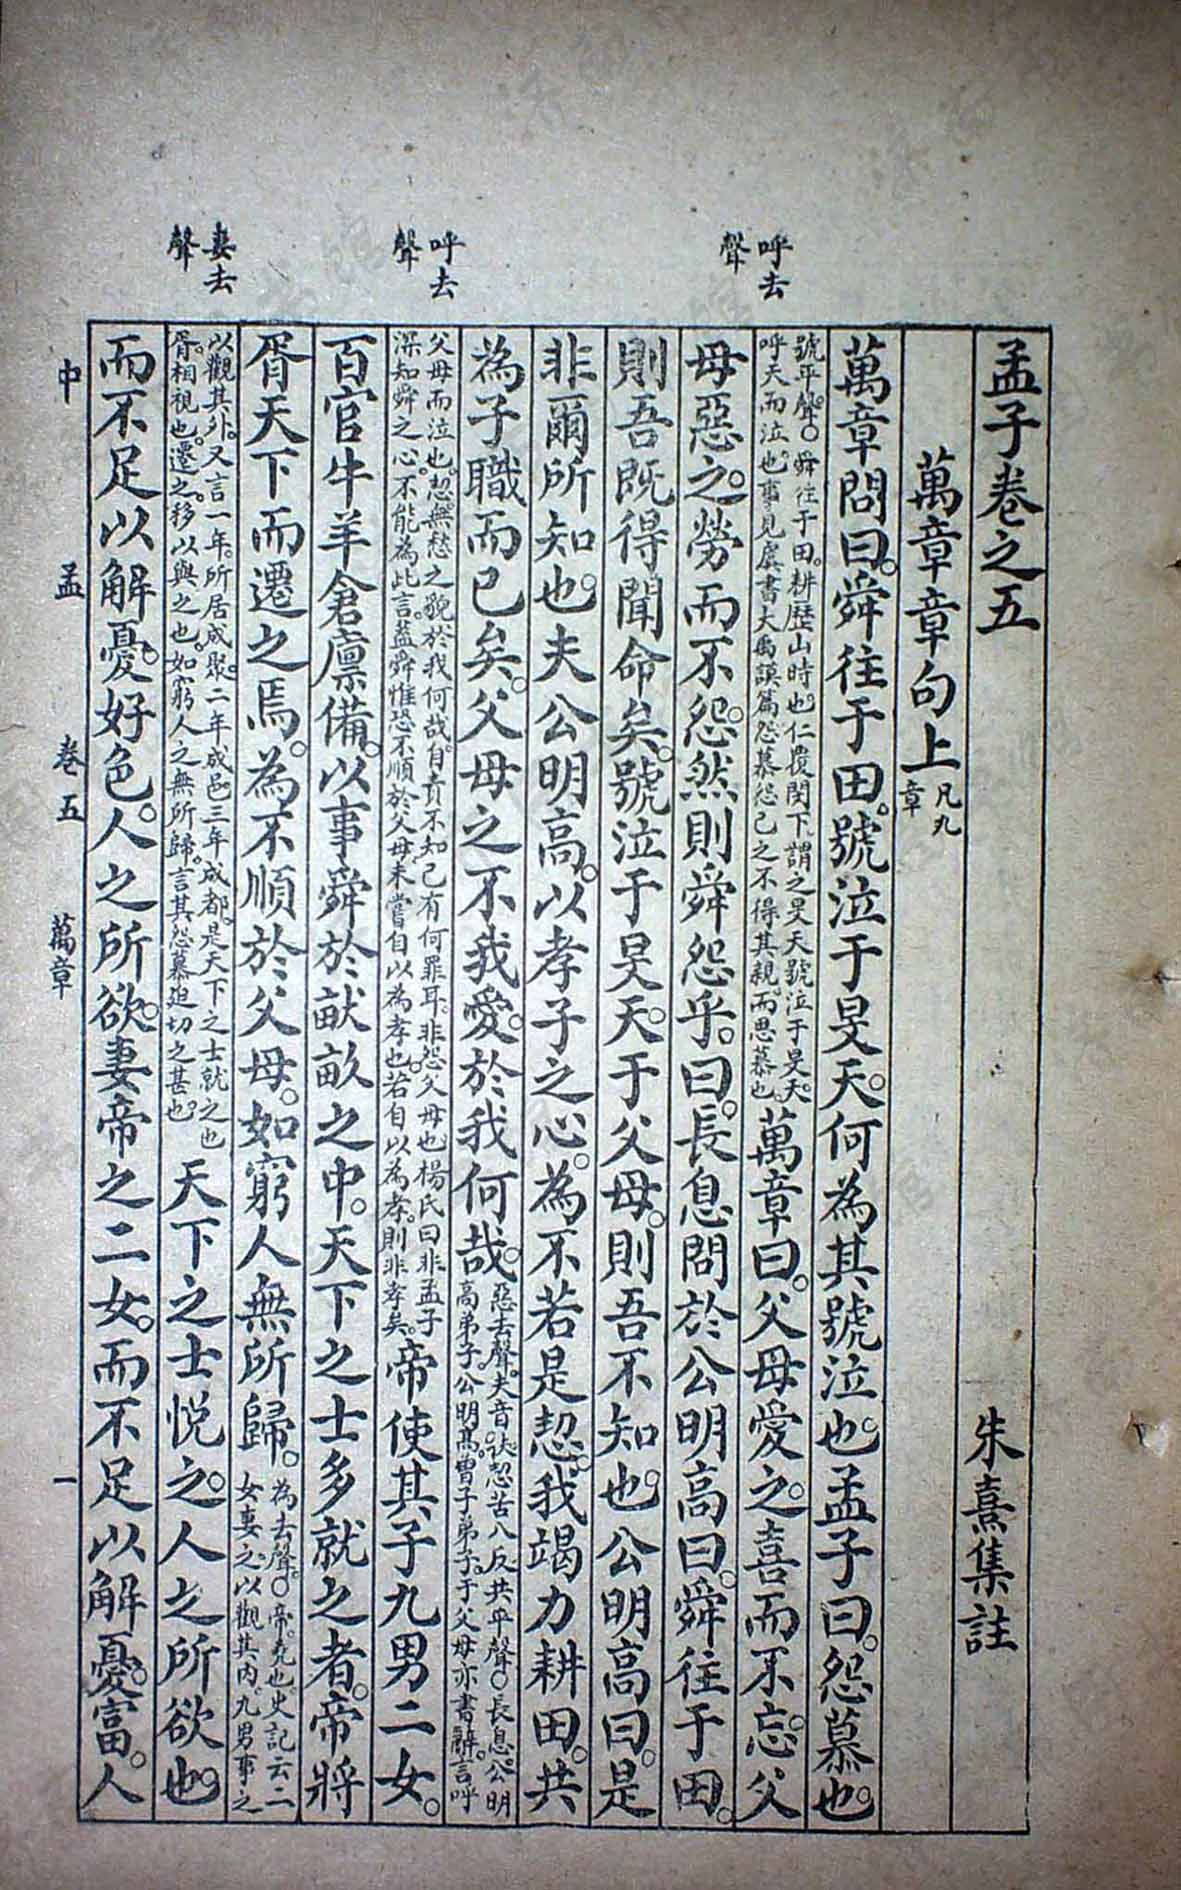 呼去聲
呼去聲
妻去聲
孟子卷之五 朱熹集註
萬章章句上 凡九章
萬章問曰。舜往于田。號泣于旻天。何為其號泣也。孟子曰。怨慕也。
號平聲。○舜往于田。耕歷山時也。仁覆閔下。謂之旻天。號泣于旻天。
呼天而泣也。事見虞書大禹謨篇。怨慕。怨己之不得其親。而思慕也。
萬章曰。父母愛之。喜而不忘。父
母惡之。勞而不怨。然則舜怨乎。曰。長息問於公明高曰。舜往于田。
則吾既得聞命矣。號泣于旻天。于父母。則吾不知也。公明高曰。是
非爾所知也。夫公明高。以孝子之心。為不若是恝。我竭力耕田。共
為子職而已矣。父母之不我愛。於我何哉。
惡去聲。夫音扶。恝苦八反。共平聲。○長息。公明
高弟子。公明高。曾子弟子。于父母亦書辭。言呼
父母而泣也。恝。無愁之貌。於我何哉。自責不知己有何罪耳。非怨父母也。楊氏曰。非孟子
深知舜之心。不能為此言。蓋舜惟恐不順於父母。未嘗自以為孝也。若自以為孝。則非孝矣。
帝使其子九男二女。
百官牛羊倉廩備。以事舜於畎畝之中。天下之士多就之者。帝將
胥天下而遷之焉。為不順於父母。如窮人無所歸。
為去聲。○帝。堯也。史記云。二
女妻之。以觀其內。九男事之
以觀其外。又言一年。所居成聚。二年成邑。三年成都。是天下之士就之也
胥。相視也。遷之。移以與之也。如窮人之無所歸。言其怨慕迫切之甚也。
天下之士悅之。人之所欲也。
而不足以解憂。好色。人之所欲。妻帝之二女。而不足以解憂。富。人
中 孟 卷五 萬章 一